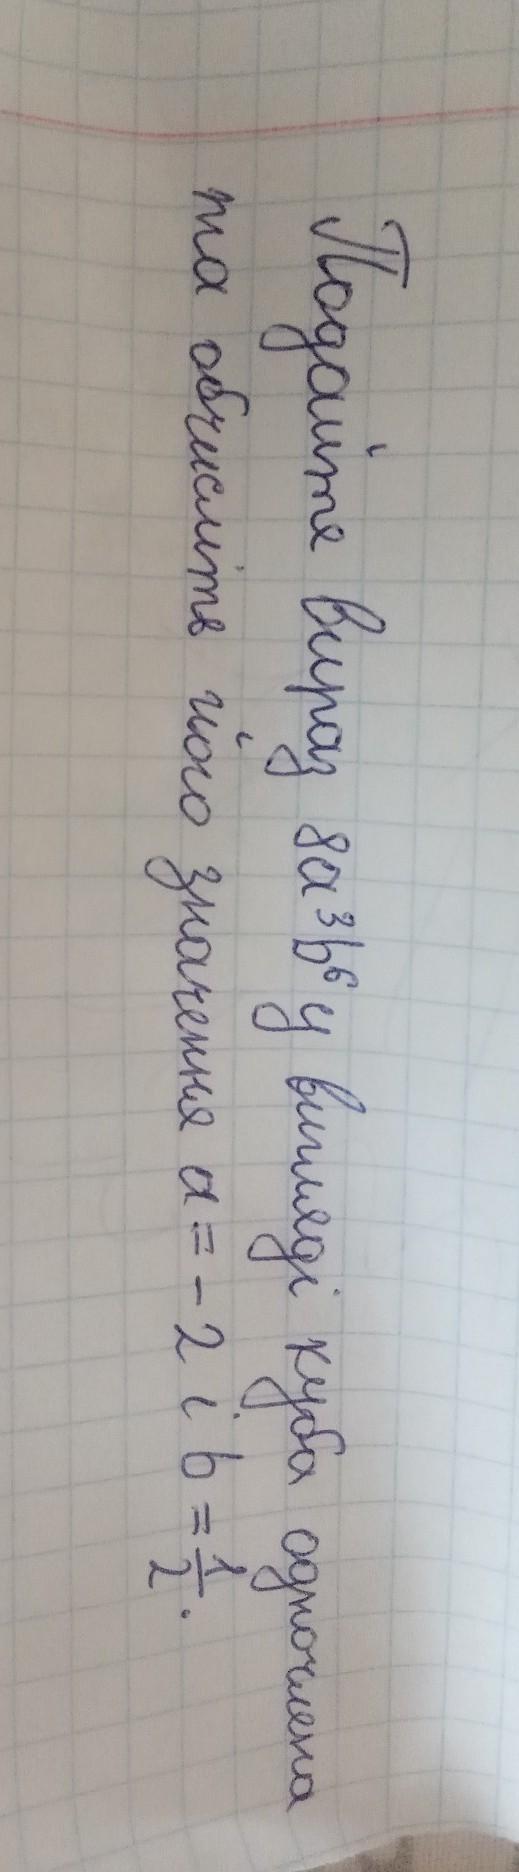 Подайте вираз 8a³b⁶ у вигляді куба одночлена
та обчисліть його значення a = - 2 і b = 1/2.